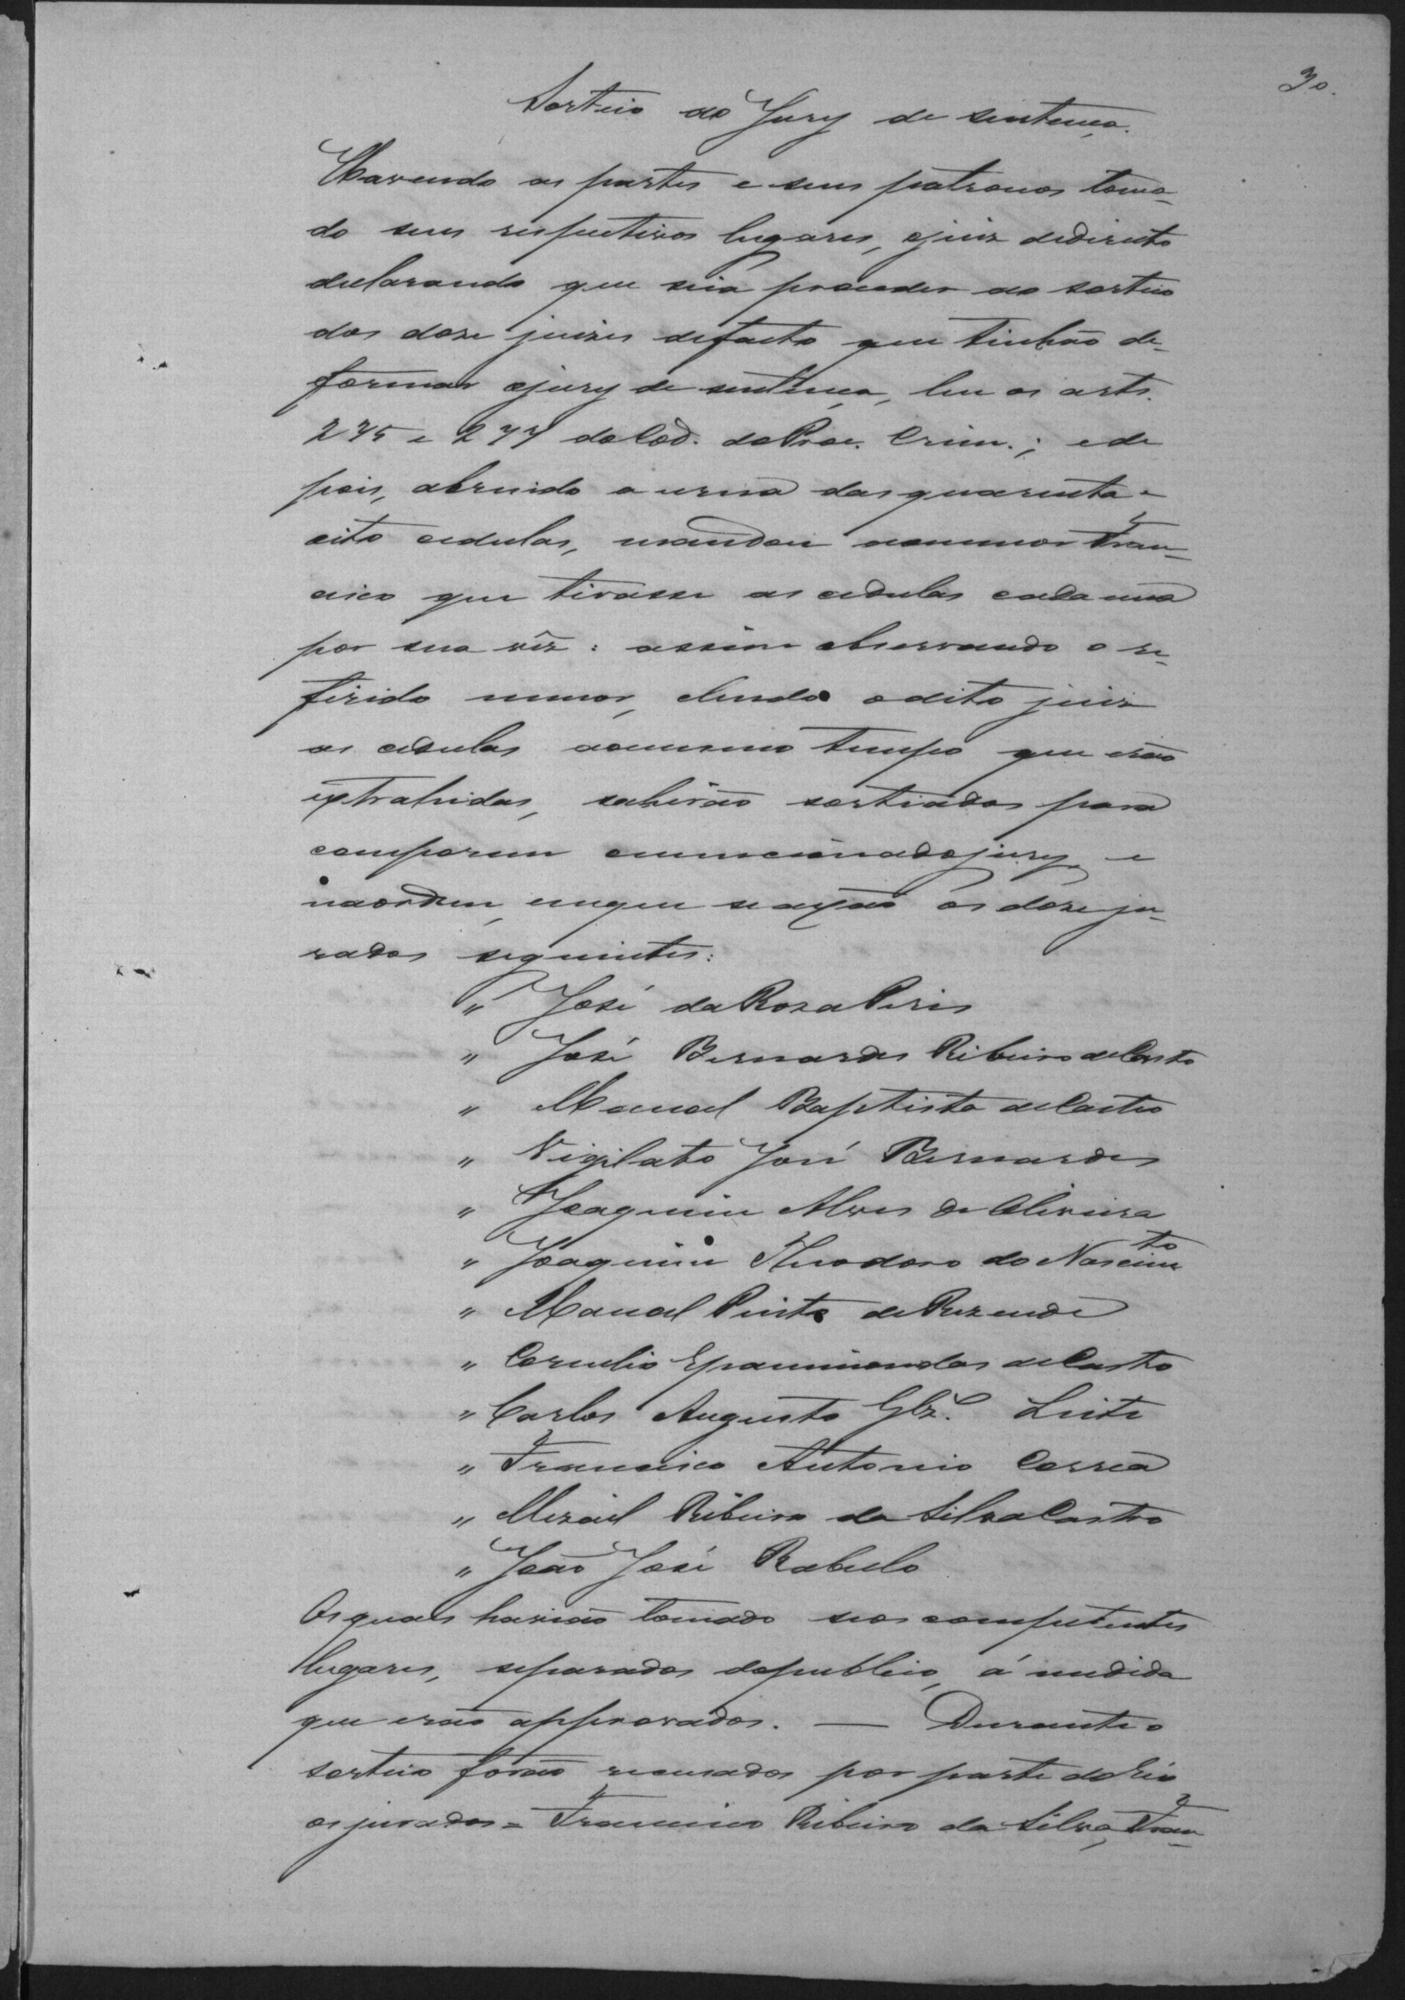 30.
Sorteio do Jury de sentença.
Havendo as partes e seus patronos toma-
do seus respectivos lugares, ojuiz dedireito
declarando que seia proceder ao sorteio
dos doze juizes defacto que tinhão de
formar ojury de sentença, leu os arts.
275 e 277 doCod. doProc. Crim.; e de
pois, abrindo a urna das quarenta e
oito cedulas, mandou aomenor Fran-
cisco que tirasse as cedulas cada uma
por sua vêz: assim observando o re-
ferido menor, elendo o dito juiz
as cedulas aomesmo tempo que erão
extrahidas, sahirão sorteados para
comporem omencionadojury, e
naordem, emque seachão os doze ju-
rados seguintes:
" José daRosaPires
" José Bernardes Ribeiro deCastro
" Manoel Baptista deCastro
" Vigilato José Bernardes
" Joaquim Alves de Oliveira
" Joaquim Theodoro do Nascimto
" Manoel Pinto deRezende
" Cornelio Epaminondas deCastro
" Carlos Augusto Glz. Leite
" Francisco Antonio Corrêa
" Mizael Ribeiro da SilvaCastro
" João José Rabelo
Osquaes havião tomado seos competentes
lugares, separados dopublico, á medida
que erão approvados. — Durante o
sorteio forão recusados por parte doRéo
osjurados = Francisco Ribeiro da Silva, Fran-